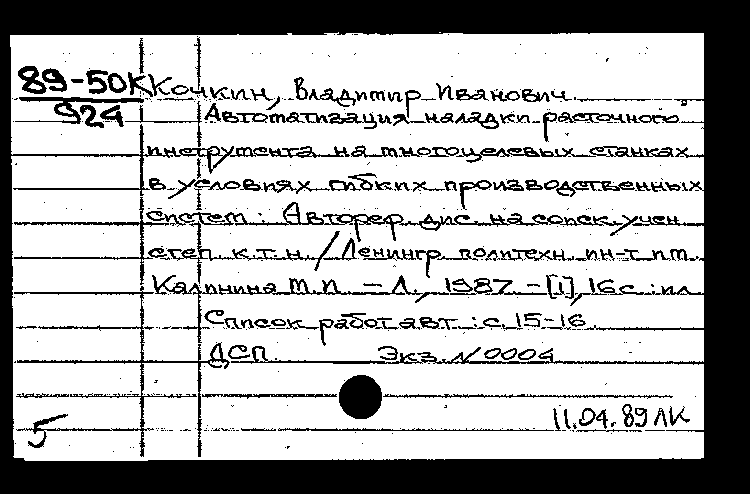 89-50К Кочкин, Владимир Иванович.
924 Автоматизация наладки расточного
инструмента на многоцелевых станках
в условиях гибких производственных
систем : Автореф. дис. на соиск. учен.
степ. к.т.н. / Ленингр. политехн. ин-т им.
Калинина М.И. – Л., 1987. – [1], 16 с : ил
Список работ авт. : с. 15-16.
ДСП. Экз. N 0004
11.04.89 ЛК
5